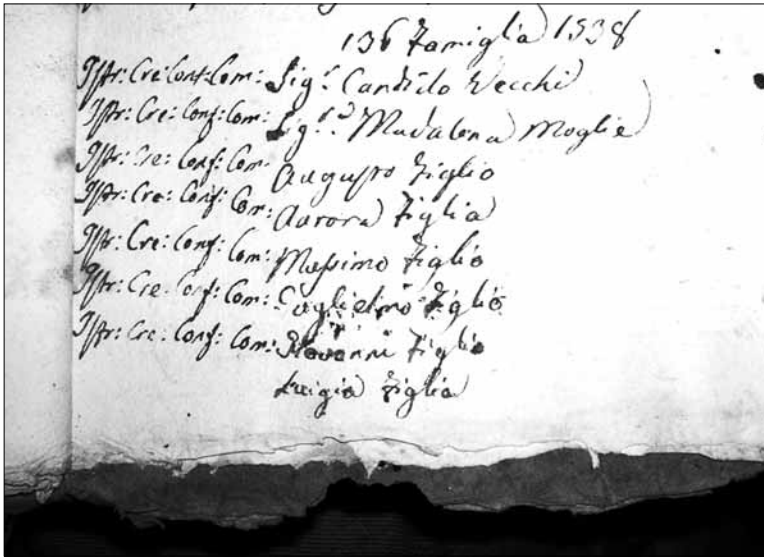 136 Famiglia 1538
Istr: Cre: Conf: Com: Sig.r Candido Vecchi
Istr: Cre: Conf: Com: Sig.ra Madalena Moglie
Istr: Cre: Conf: Com: Augusto Figlio
Istr: Cre: Conf: Com: Aurora Figlia
Istr: Cre: Conf: Com: Massimo Figlio
Istr: Cre: Conf: Com: Guglielmo Figlio
Istr: Cre: Conf: Com: Giovanni Figlio
Luigia Figlia